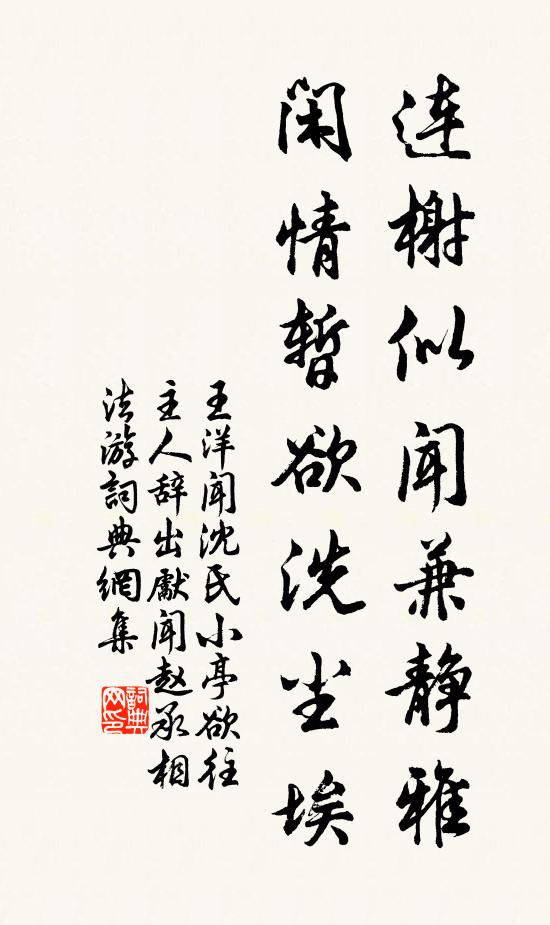 连榭似闻兼静雅
闲情暂欲洗尘埃
王洋闻沈氏小亭欲往
主人辞出獻闻赵丞相
法游詞典網集
詞典
网印